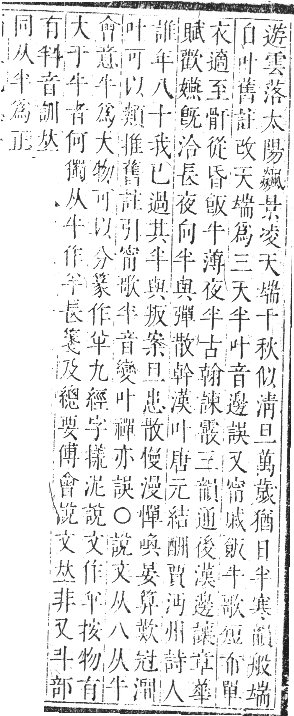 遊雲落太陽飆景凌天端千秋似淸旦萬歲猶日半寒韻般端
自叶舊註改天端爲三天半叶音邊誤又甯戚飯牛歌短布單
衣適至骭從昏飯牛薄夜半古翰諫霰三韻通後漢邊讓章華
賦歡嬿旣洽長夜向半與彈散幹漢叶唐元結酬賈沔州詩人
誰年八十我已過其半與叛案旦患散慢漫憚喚晏算歎冠澗
叶可以類推舊註引甯歌半音變叶禪亦誤〇說文从八从牛
會意牛爲大物可以分篆作𠦒九經字㨾泥說文作𠦒按物有
大于牛者何獨从牛作𠦒長箋及總要傅會說文𠀤非又斗部
有料音訓𠀤
同从半爲正